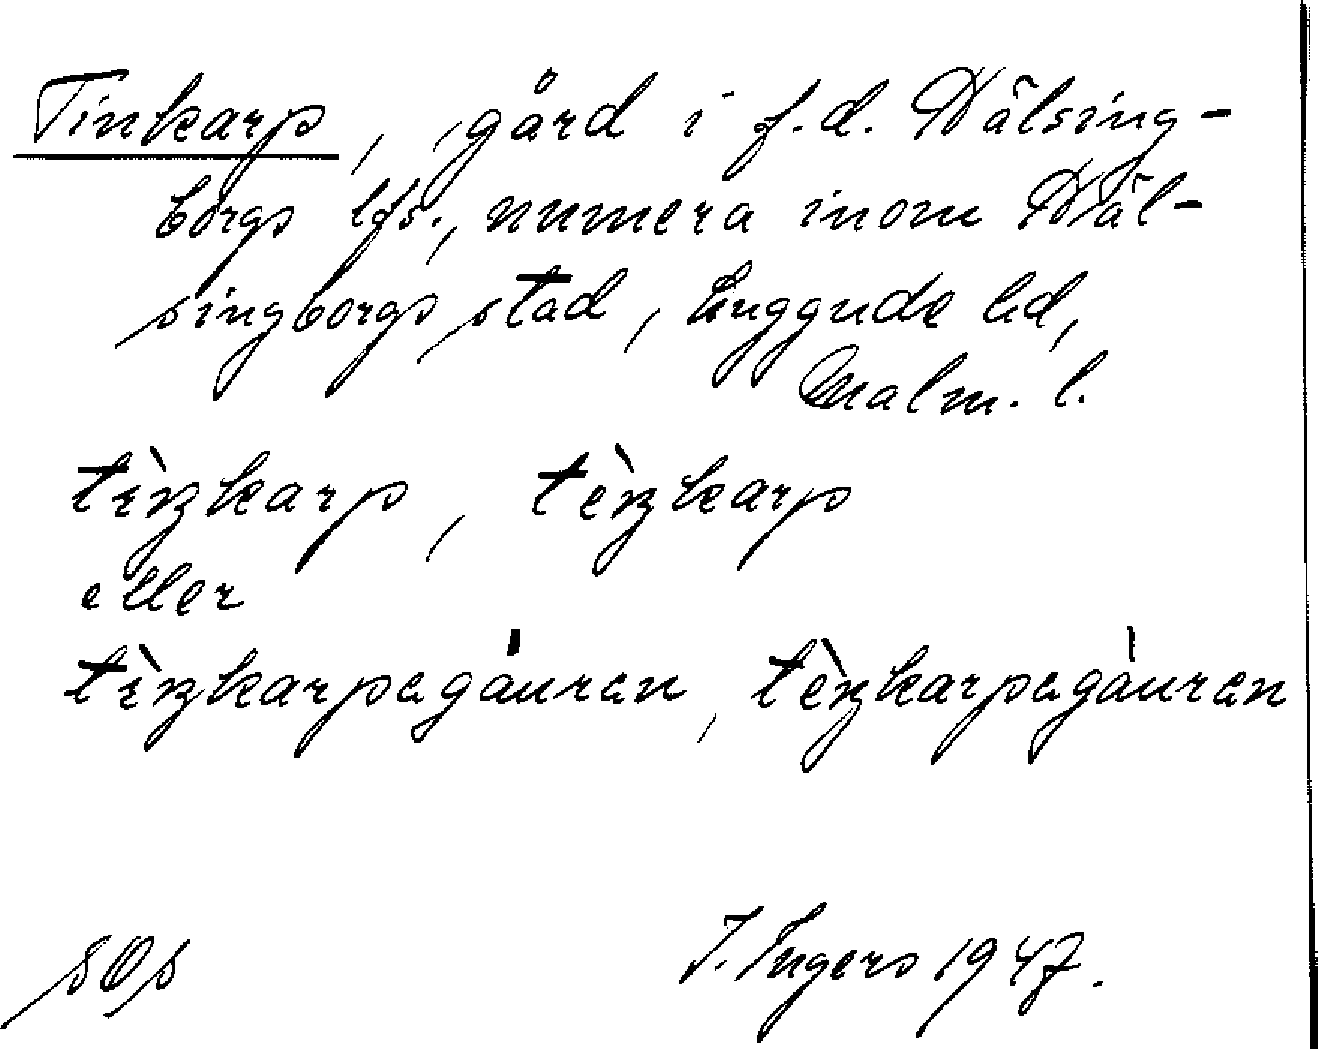 Tinkarp, gård i f.d. Hälsing-
borgs lfs., numera inom Häl-
singborgs stad, Luggude hd,
Malm. l.
tèŋkarp, tèŋkarp
eller
tèŋkarpagå̀uran, tèŋkarpagàuran
I. Ingers 1947.